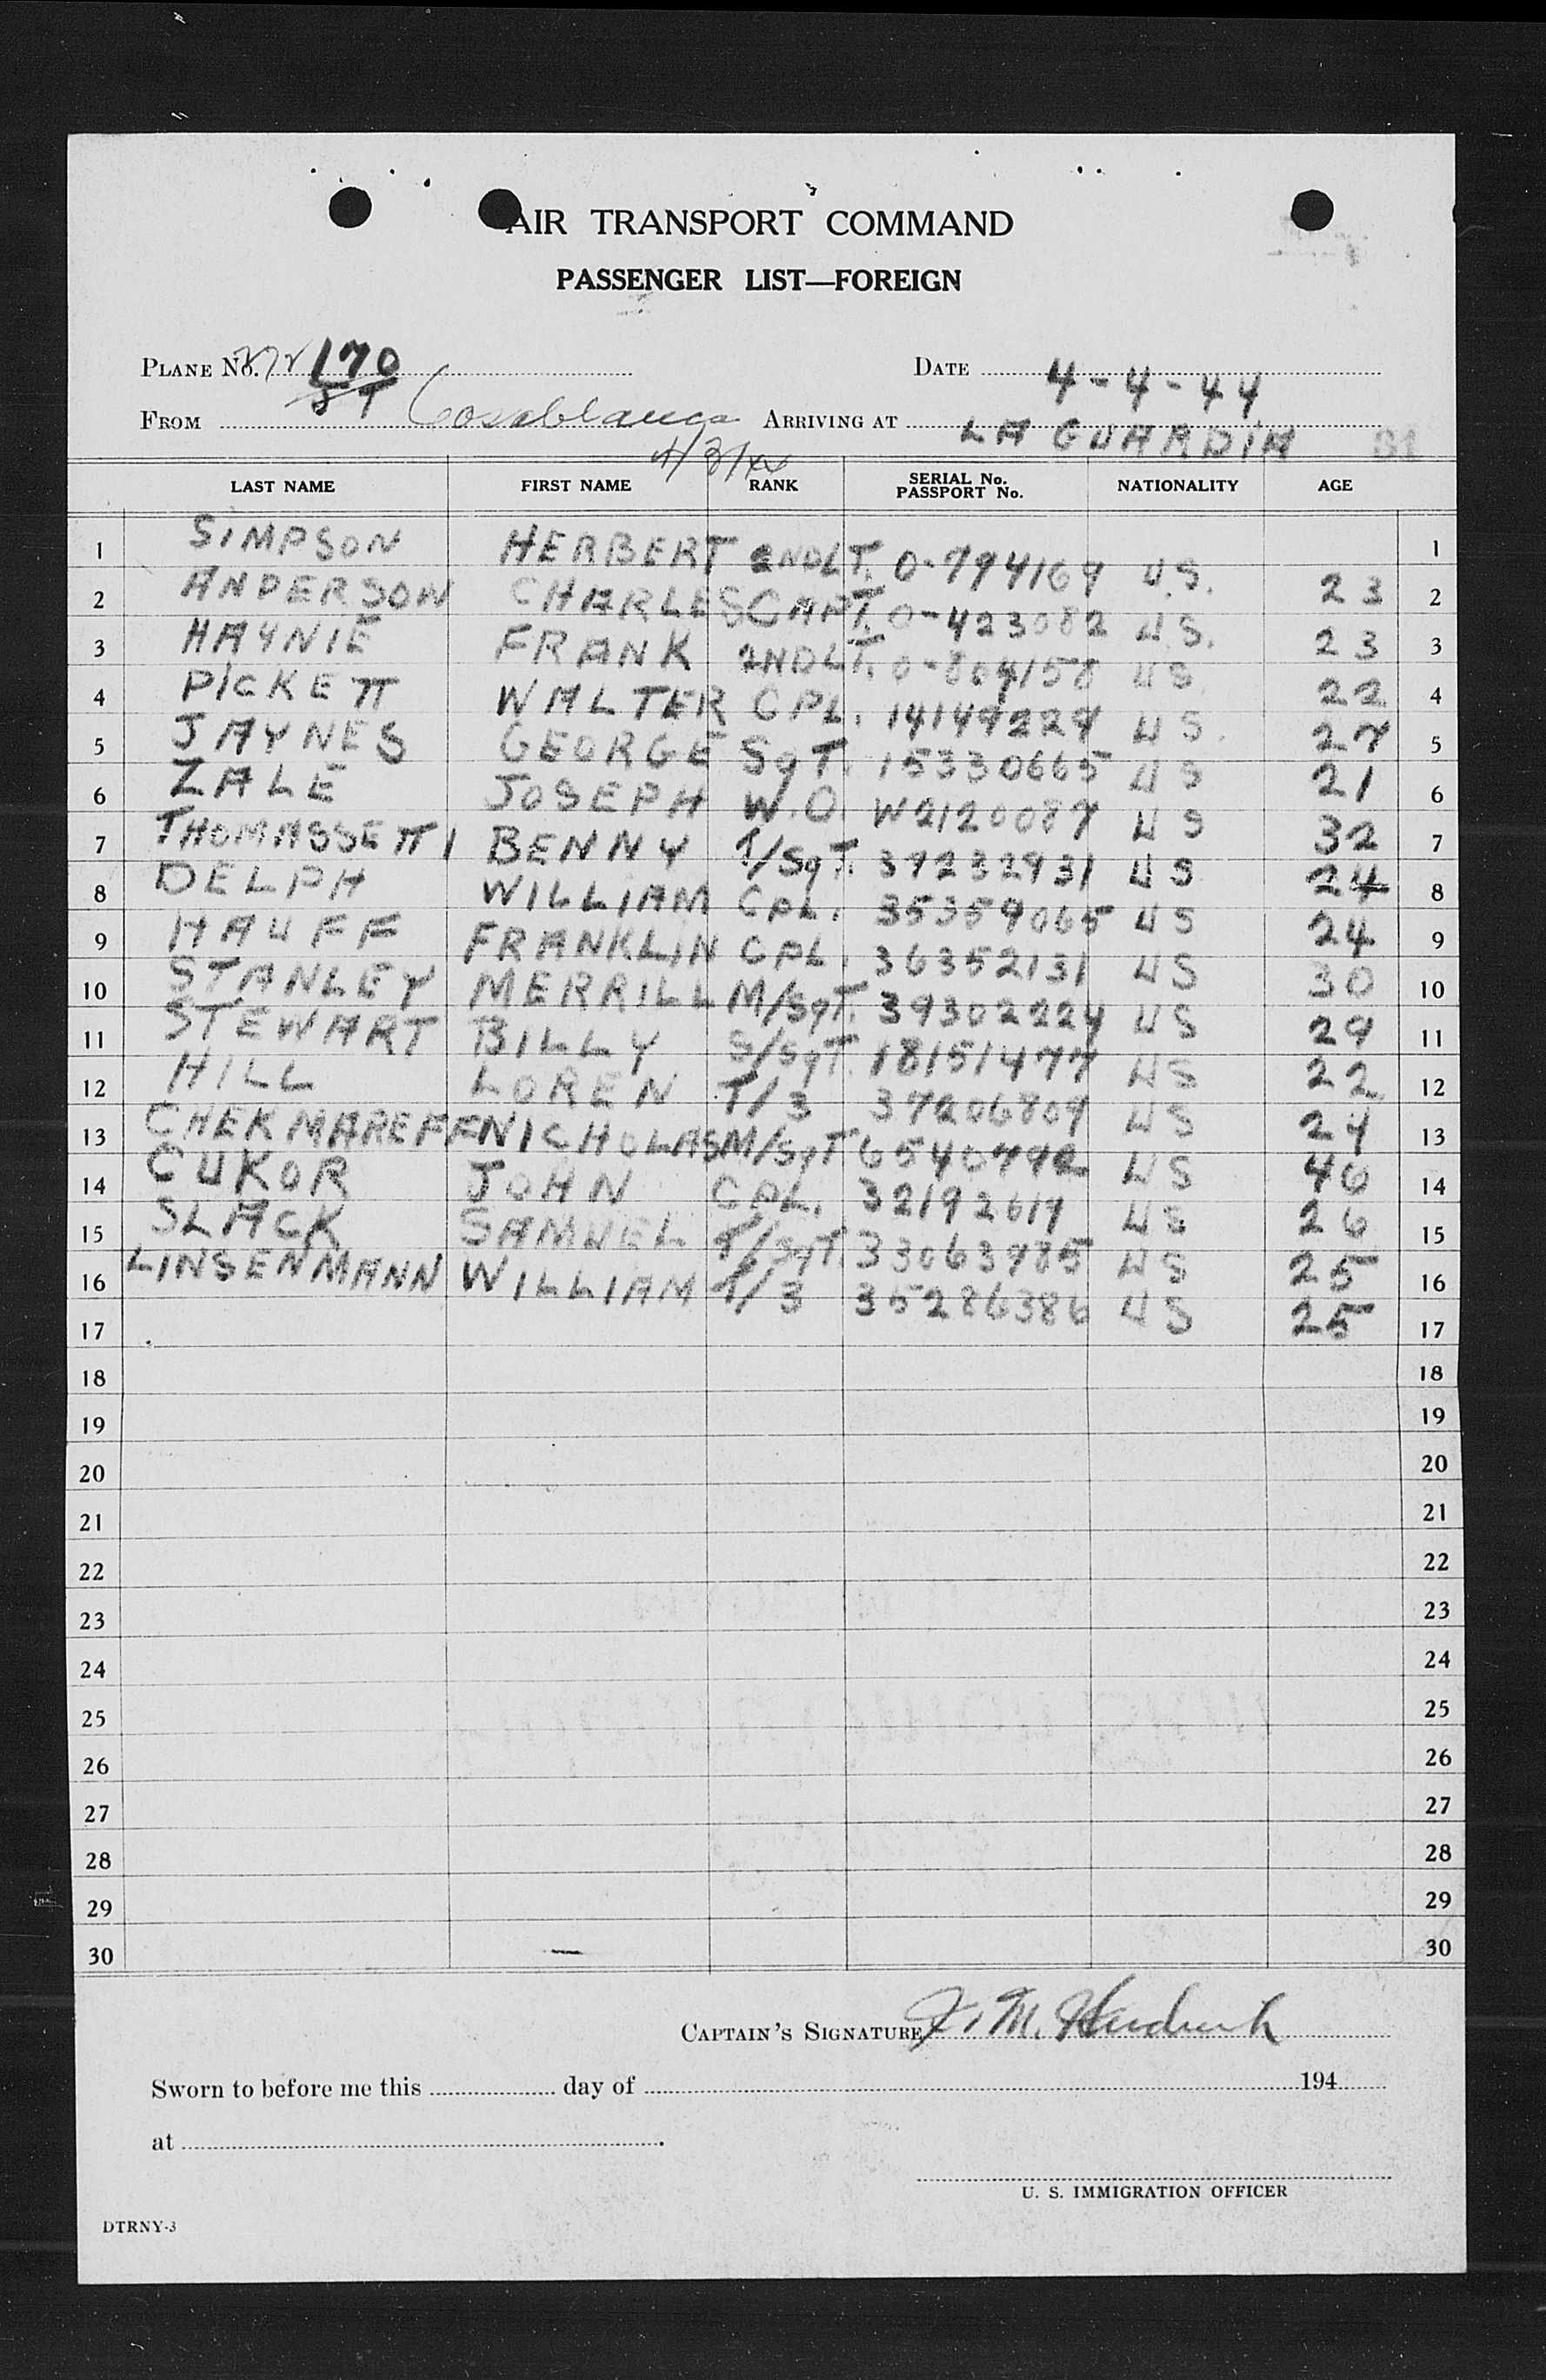 AIR TRANSPORT COMMAND
PASSENGER LIST—FOREIGN
PLANE No. 272 170 DATE 4-4-44
FROM ST Casablanca ARRIVING AT LA GUARDIA
4/3/44
LAST NAME FIRST NAME RANK SERIAL No. PASSPORT No. NATIONALITY AGE
1 SIMPSON HERBERT 2NDLT. O-794169 U.S. 23 1
2 ANDERSON CHARLES CAPT. O-423082 U.S. 23 2
3 HAYNIE FRANK 2NDLT. O-804158 US. 22 3
4 PICKETT WALTER CPL. 14149229 US. 27 4
5 JAYNES GEORGE SgT. 15330665 US 21 5
6 ZALE JOSEPH W.O. W2120087 US 32 6
7 THOMASSETTI BENNY T/SgT. 39232931 US 24 7
8 DELPH WILLIAM CPL. 35359065 US 24 8
9 HAUFF FRANKLIN CPL. 36352131 US 30 9
10 STANLEY MERRILL M/SgT. 39302224 US 29 10
11 STEWART BILLY S/SgT. 18151477 US 22 11
12 HILL LOREN T/3 37206809 US 24 12
13 CHEKMAREFF NICHOLAS M/SgT 6540792 US 46 13
14 CUKOR JOHN CPL. 32192619 US 26 14
15 SLACK SAMUEL T/SgT. 33063985 US 25 15
16 LINSENMANN WILLIAM T/3 35286386 US 25 16
17 17
18 18
19 19
20 20
21 21
22 22
23 23
24 24
25 25
26 26
27 27
28 28
29 29
30 30
CAPTAIN'S SIGNATURE
Sworn to before me this day of 194
at .
U. S. IMMIGRATION OFFICER
DTRNY-3